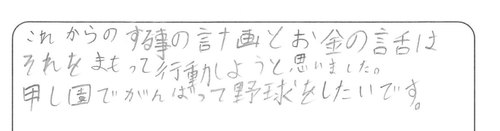 これからのする事の計画とお金の話は
それをまもって行動しようと思いました。
甲し園でがんばって野球をしたいです。